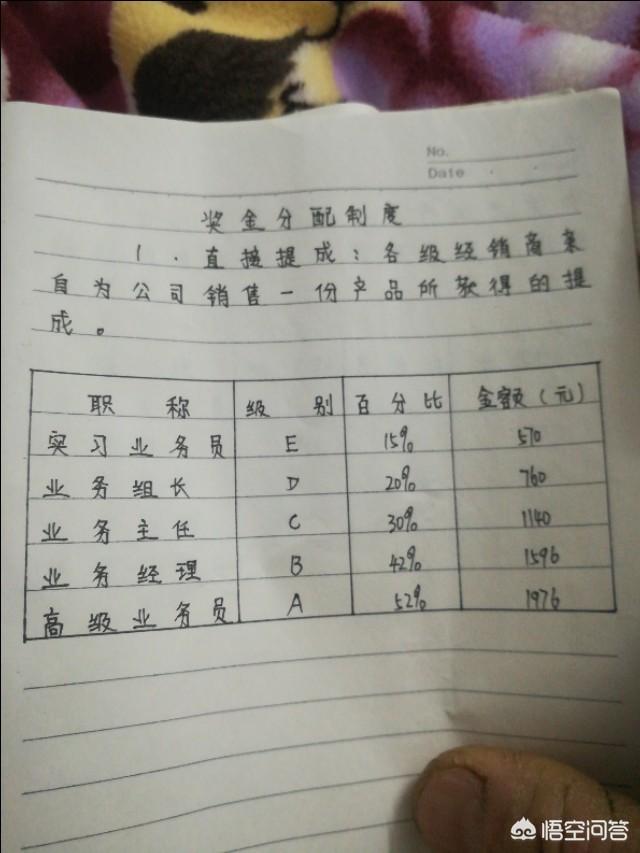 No.
Date
奖金分配制度
1.直接提成：各级经销商亲
自为公司销售一份产品所获得的提
成。
职称 级别 百分比 金额（元）
实习业务员 E 15% 570
业务组长 D 20% 760
业务主任 C 30% 1140
业务经理 B 42% 1596
高级业务员 A 52% 1976
悟空问答